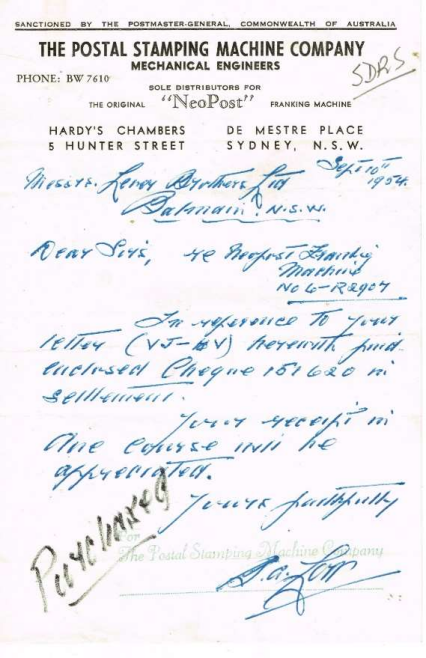 SANCTIONED BY THE POSTMASTER-GENERAL, COMMONWEALTH OF AUSTRALIA
THE POSTAL STAMPING MACHINE COMPANY
MECHANICAL ENGINEERS
PHONE: BW 7610
SDRS
SOLE DISTRIBUTORS FOR
THE ORIGINAL "NeoPost" FRANKING MACHINE
HARDY'S CHAMBERS DE MESTRE PLACE
5 HUNTER STREET SYDNEY, N.S.W.
Sept 10th
1954.
Messrs. Brothers Ltd
Balmain. N.S.W.
Dear Sirs, re Neopost Franking
Machine
No
In reference to your
letter herewith find
enclosed Cheque in
settlement.
Your receipt in
due course will be
appreciated.
Yours faithfully
Purchased
For
The Postal Stamping Machine Company